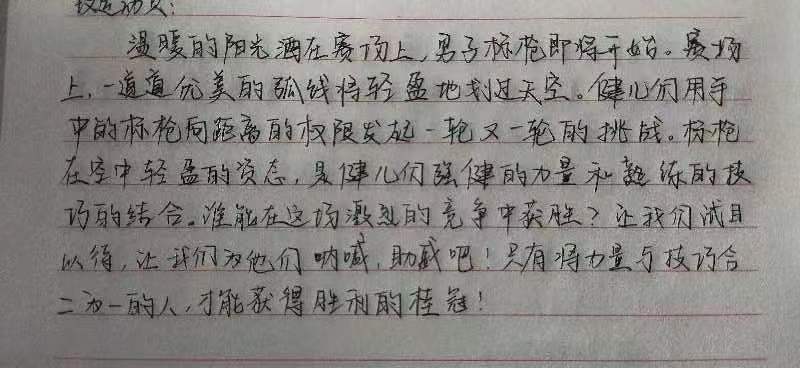 致运动员:
温暖的阳光洒在赛场上,男子标枪即将开始。赛场
上,一道道优美的弧线将轻盈地划过天空。健儿们用手
中的标枪向距离的权限发起一轮又一轮的挑战。标枪
在空中轻盈的姿态,是健儿们强健的力量和熟练的技
巧的结合。谁能在这场激烈的竞争中获胜?让我们拭目
以待,让我们为他们呐喊,助威吧!只有将力量与技巧合
二为一的人,才能获得胜利的桂冠!